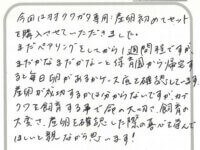 今回はオオクワガタ専用産卵初めてセット
を購入させていただきました。
まだペアリングをしてから1週間程ですが、
まだかなまだかなと保育園から帰宅す
ると毎日卵があるかケース底を確認しています。
産卵が成功するかは分からないですが、カブ
クワを飼育する事で命の大切さ、飼育の
大変さ、産卵を確認した際の喜びを学んで
ほしいと親ながら思います!